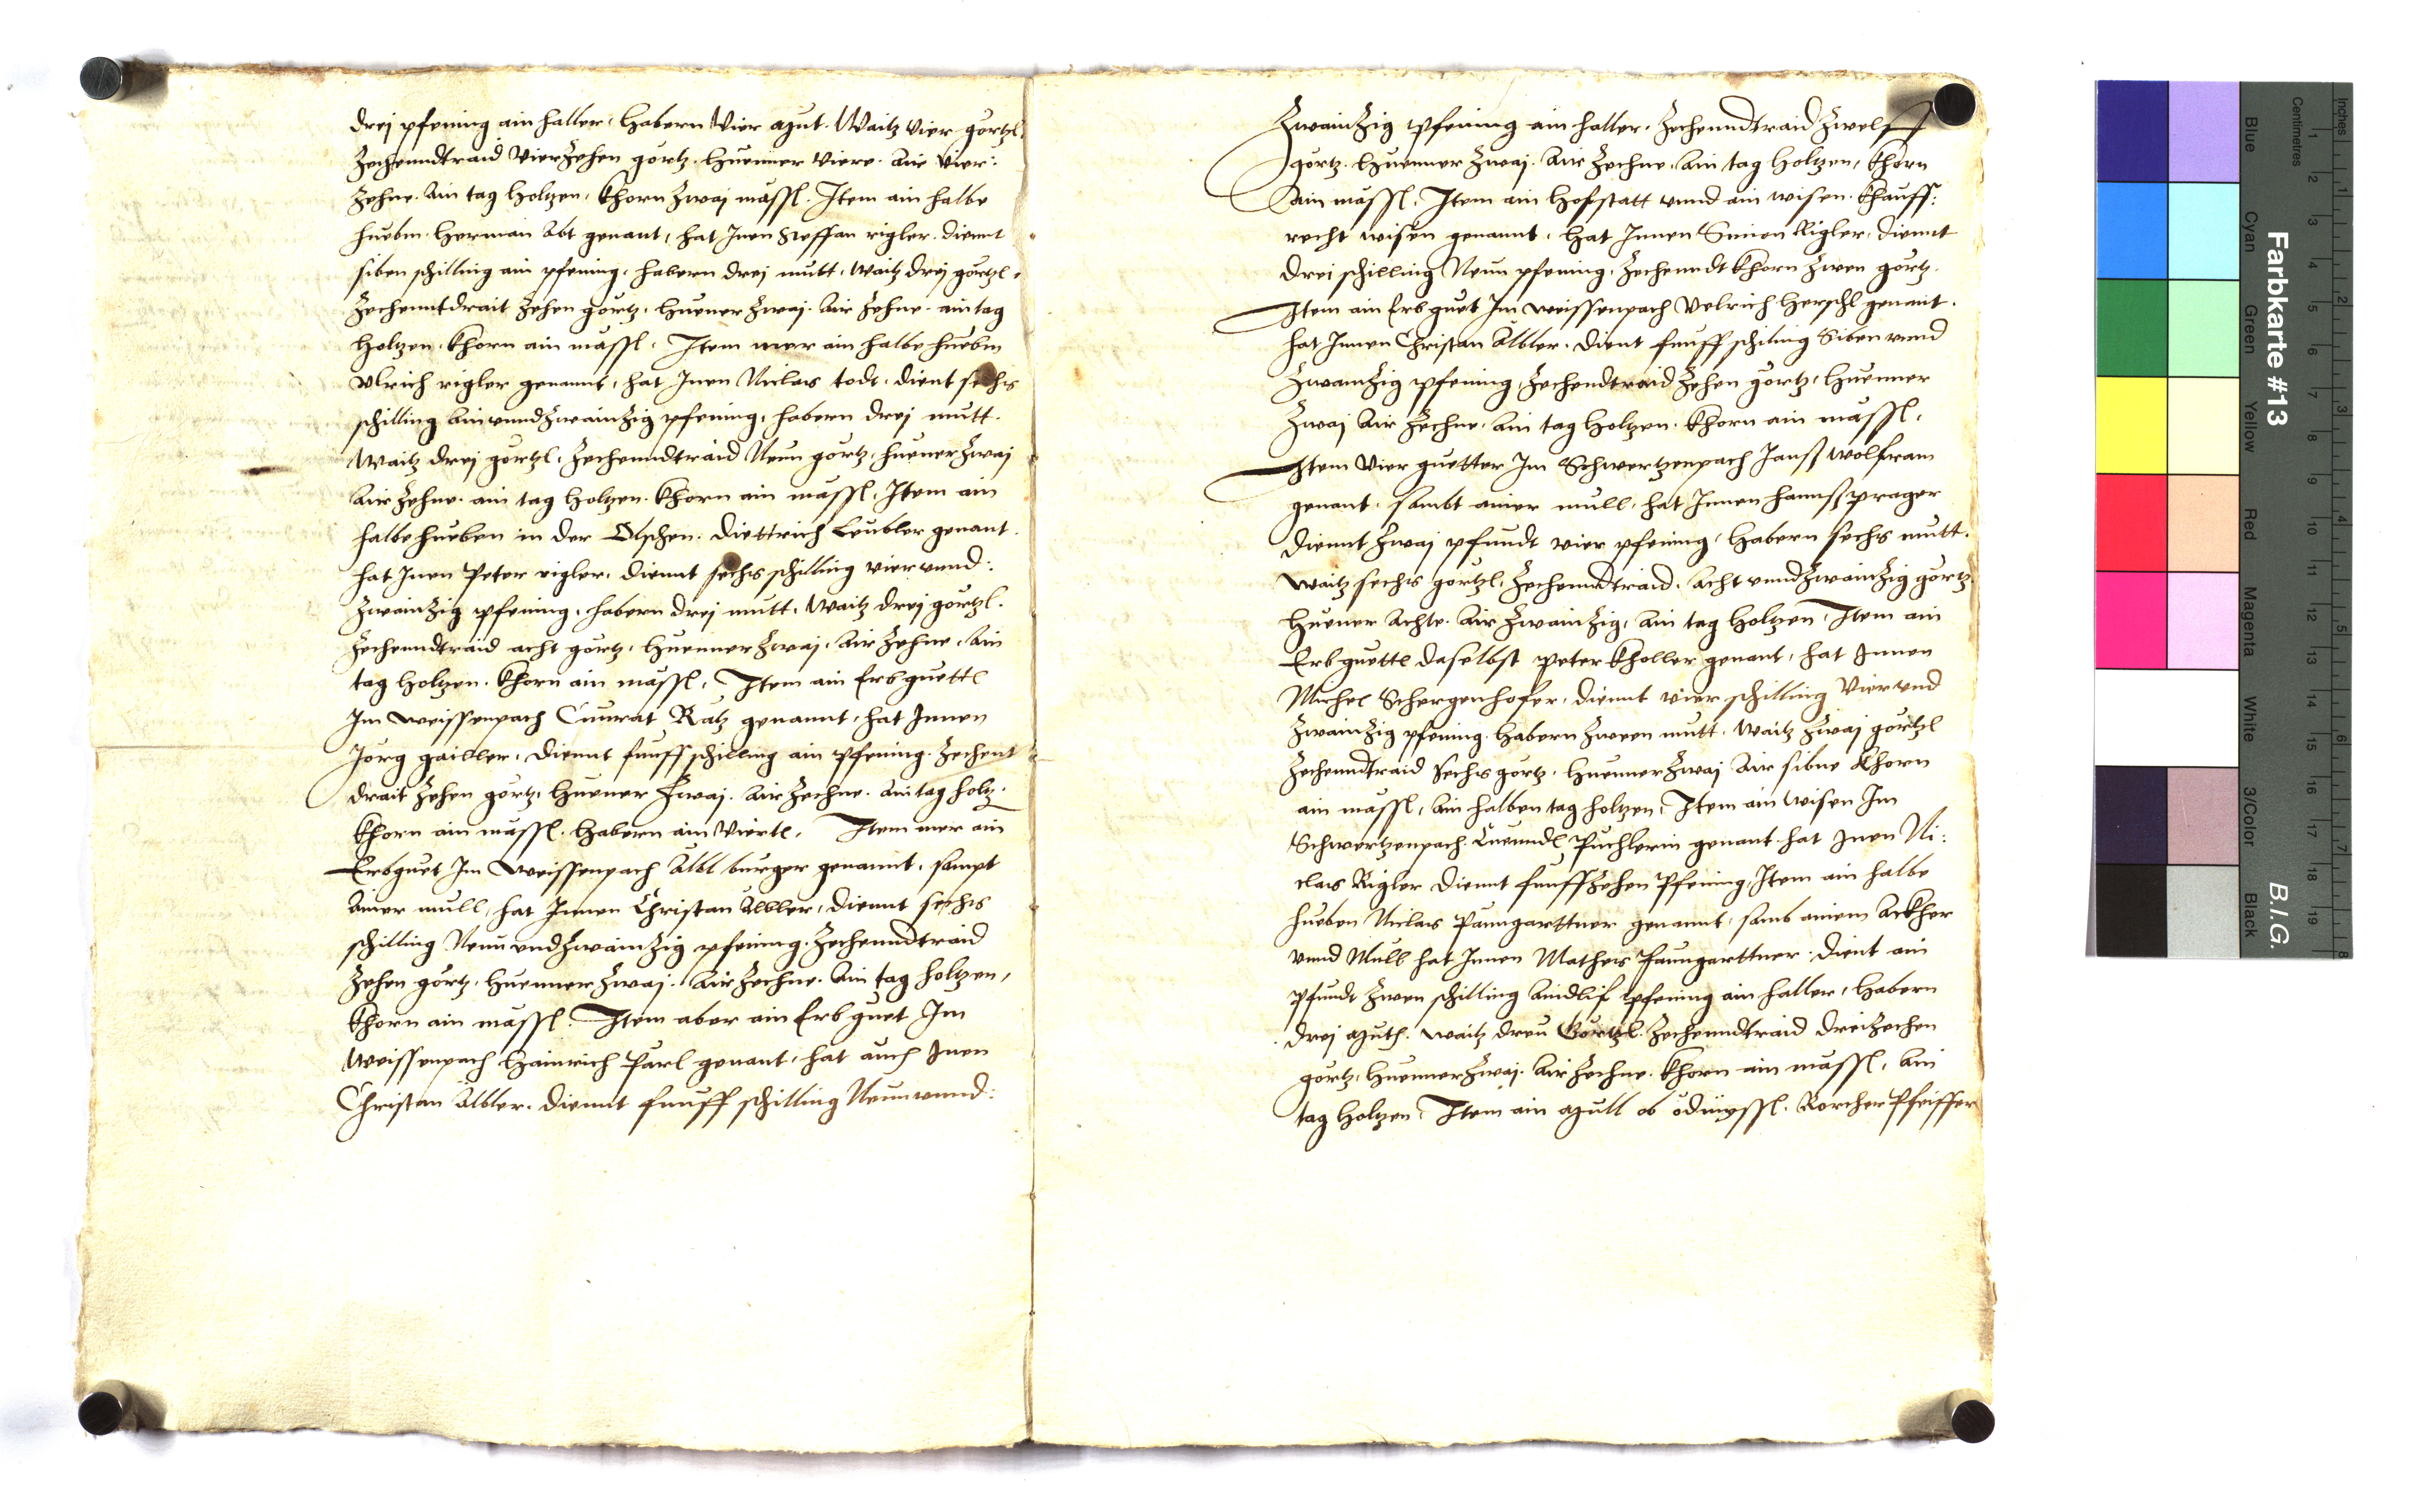 drej pfening ain haller, Habern Vier mut. Waitz Vier gortzl.
Zechenndtraid Vierzehen gortz. Huenner Viere. Air Vier:
zehne. Ain tag Holtzen, Khorn zwaj mässl. Item ain halbe
huebm. Herman Abt genant, hat Jnen Steffan rigler. diennt
siben schilling ain pfening, habern drej mutt, waitz drej görtzl,
Zechenntdrait zehen görtz, Huener zwaj. Air zehne. ain tag
Holtzen. Khorn ain mässl. Item mer ain halbe huebm
Vlrich rigler genannt, hat Jnen Niclas todt. dient sechs
schilling Ainvnndzwainzig pfening, habern drej mutt.
Waitz drej görtzl, Zechenndtraid Neun görtz, huener zwaj
Air zehne. ain tag holtzen. Khorn ain mässl, Item ain
halbe hueben in der Olschen. Diettrich Leubler genant.
hat Jnen Peter rigler, diennt sechs schilling vier vnnd:
zwainzig pfening, habern drej mutt, Waitz drej görtzl.
Zechenndtraid acht görtz, Huenner zwaj, Air zehne, Ain
tag holtzen. Khorn ain mässl, Item ain Erbguettl
Jm weissenpach Cunrat Rätz genannt, hat Jnnen
Jorg gailler, diennt funff schilling ain pfening. Zechent
drait zehen görtz, Huener zwaj. Air zechne. Ain tag holtz.
Khorn ain mässl. Habern ain Viertl, Item mer ain
Erbguet Jm weissenpach Albl burger genannt, sampt
Ainer mull, hat Jnnen Christan Albler, diennt sechs
schilling Neun vndzwainzig pfening. Zechenndtraid
Zehen görtz, Huenner zwaj. Air zechne. Ain tag holtzen,
Khorn ain mässl. Item aber ain Erbguet Jm
Weissenpach Hainrich Parl genant, hat auch Jnen
Christan Albler. diennt funff schilling Neun vnnd:
Zwainzig pfening ain haller. Zechenndtraid zwelf
görtz. Huenner zwaj. Air zechne. Ain tag Holtzen, Khorn
Ain mässl. Item ain Hofstatt vnnd ain wisen. Khauff:
recht wisen genannt, Hat Jnnen Simon Rigler, diennt
drei schilling Neun pfening, Zechenndt Khorn zwen görtz.
Item ain Erbguet Jm weissenpach Velrich Herschl genant.
hat Jnnen Christan Albler. dient funff schiling Siben vnnd
Zwainzig pfening, Zechendtraid zehen görtz, Huenner
Zwaj Air zechne. Ain tag Holtzen. Khorn ain mässl.
Item Vier guetter Jm Schwertzenpach Janss wolfram
genant. sambt ainer mull, hat Jnnen hannss prager
diennt zwaj pfundt vier pfening, Habern sechs mutt.
waitz sechs gortzl, Zechenndtraid. Acht vnndzwainzig görtz
Huener Achte. Air zwainzig, Ain tag Holtzen, Item ain
Erbguettl daselbst Peter Kholler genant, hat Jnnen
Michel Schergenhofer, diennt vier schilling Vier vnd
zwainzig pfening. Habern zween mutt, Waitz zwaj görtzl
Zechenndtraid sechs görtz, Huenner zwaj Air sibne Khorn
ain mässl, Ain halben tag holtzen, Item ain wisen Jm
Schwertzenpach Kuenndl Puchlerin genant hat Jnen Ni:
clas Rigler diennt funffzehen Pfening, Item ain halbe
hueben Niclas Paumgarttner genannt, samb ainem Ackher
vnnd Mull hat Jnnen Matheis Paumgarttner. dient ain
pfundt zwen schilling Aindlif pfening ain haller, Habern
drej muth. waitz dreu Görtzl. Zechenndtraid dreizechen
görtz, Huenner zwaj. Air zechne. Khorn ain mässl, Ain
tag Holtzen. Item ain mull ob Pfeiffer
Farbkarte #13
B.I.G.
Inches
Centimetres
Blue
Cyan
Green
Yellow
Red
Magenta
White
3/Color
Black
1 2 3 4 5 6 7 8 9 10 11 12 13 14 15 16 17 18 19
1 2 3 4 5 6 7 8